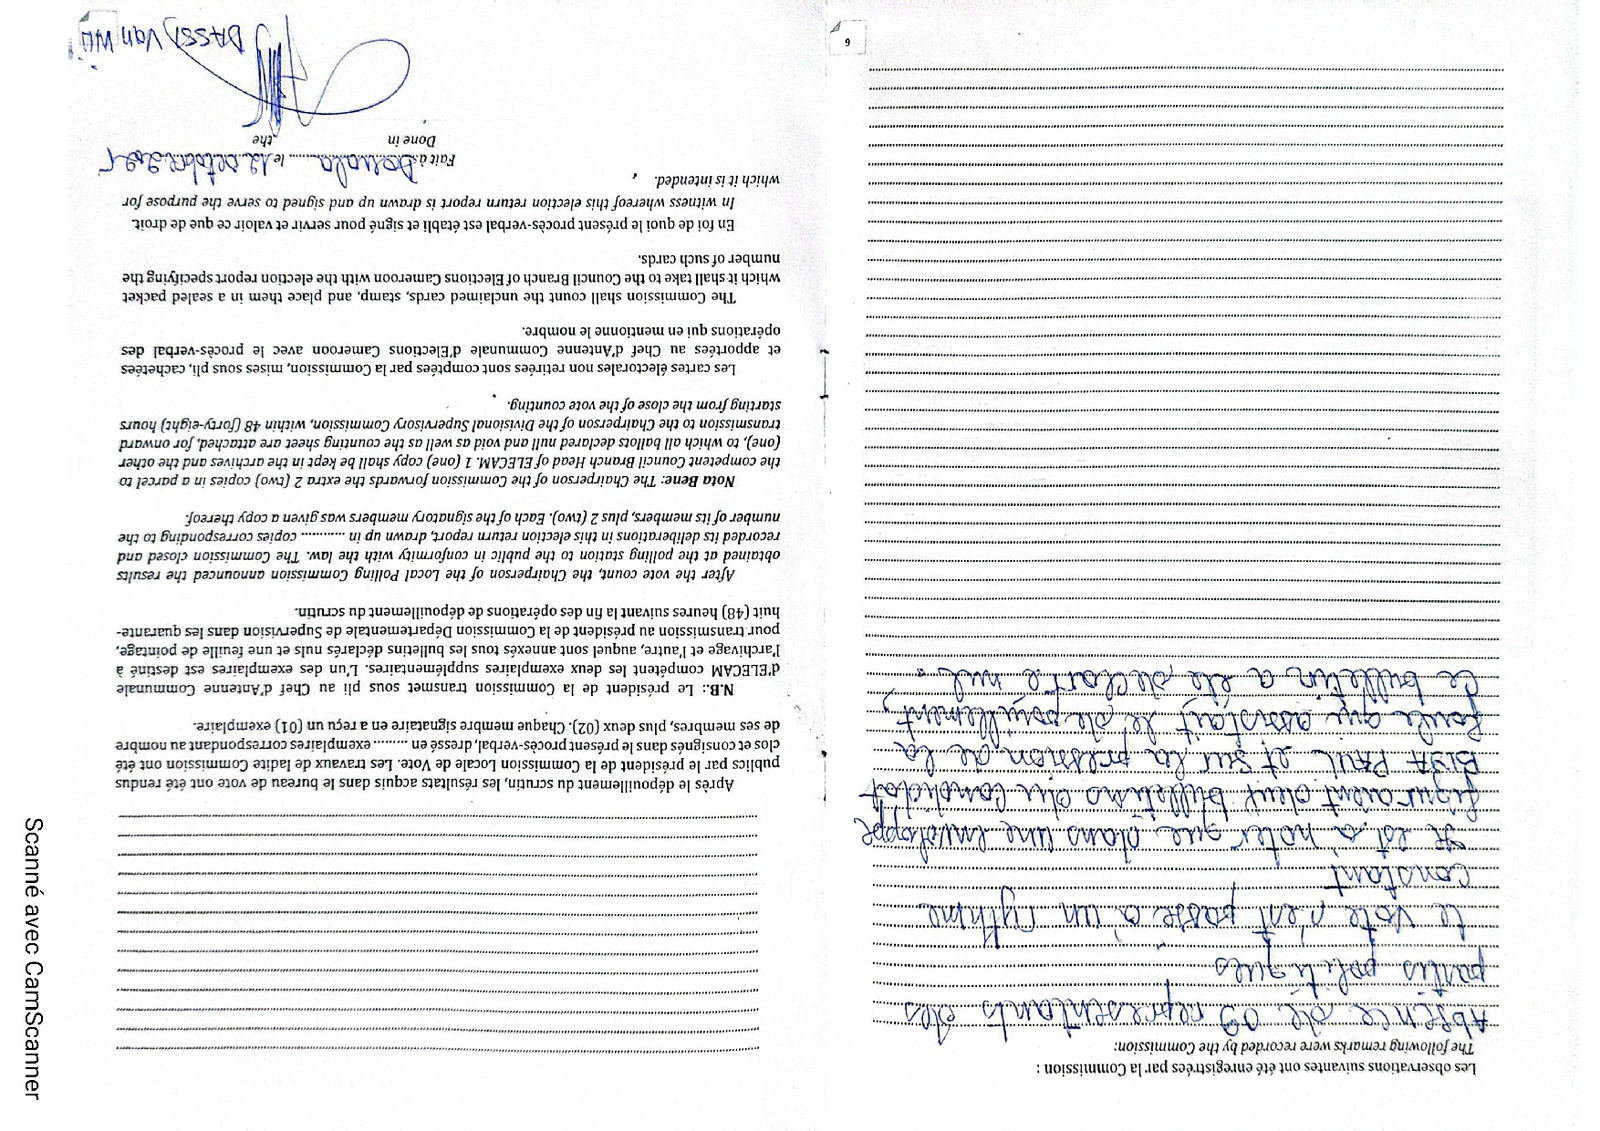 Les observations suivantes ont été enregistrées par la Commission :
The following remarks were recorded by the Commission:
Absence de 09 représentants des
partis politiques
Le vote s'est passé à un rythme
constant
Il est à noter que dans une enveloppe
figuraient deux bulletins du candidat
BIYA PAUL et sur la pression de la
foule qui assistait le dépouillement,
ce bulletin a été déclaré nul.
9
Après le dépouillement du scrutin, les résultats acquis dans le bureau de vote ont été rendus
publics par le président de la Commission Locale de Vote. Les travaux de ladite Commission ont été
clos et consignés dans le présent procès-verbal, dressé en ......... exemplaires correspondant au nombre
de ses membres, plus deux (02). Chaque membre signataire en a reçu un (01) exemplaire.
N.B.: Le président de la Commission transmet sous pli au Chef d'Antenne Communale
d'ELECAM compétent les deux exemplaires supplémentaires. L'un des exemplaires est destiné à
l'archivage et l'autre, auquel sont annexés tous les bulletins déclarés nuls et une feuille de pointage,
pour transmission au président de la Commission Départementale de Supervision dans les quarante-
huit (48) heures suivant la fin des opérations de dépouillement du scrutin.
After the vote count, the Chairperson of the Local Polling Commission announced the results
obtained at the polling station to the public in conformity with the law. The Commission closed and
recorded its deliberations in this election return report, drawn up in ............ copies corresponding to the
number of its members, plus 2 (two). Each of the signatory members was given a copy thereof.
Nota Bene: The Chairperson of the Commission forwards the extra 2 (two) copies in a parcel to
the competent Council Branch Head of ELECAM. 1 (one) copy shall be kept in the archives and the other
(one), to which all ballots declared null and void as well as the counting sheet are attached, for onward
transmission to the Chairperson of the Divisional Supervisory Commission, within 48 (forty-eight) hours
starting from the close of the vote counting.
Les cartes électorales non retirées sont comptées par la Commission, mises sous pli, cachetées
et apportées au Chef d'Antenne Communale d'Elections Cameroon avec le procès-verbal des
opérations qui en mentionne le nombre.
The Commission shall count the unclaimed cards, stamp, and place them in a sealed packet
which it shall take to the Council Branch of Elections Cameroon with the election report specifying the
number of such cards.
En foi de quoi le présent procès-verbal est établi et signé pour servir et valoir ce que de droit.
In witness whereof this election return report is drawn up and signed to serve the purpose for
which it is intended.
Fait à Douala le 12 octobre 2025
Done in the
DASSI Van
Scanné avec CamScanner